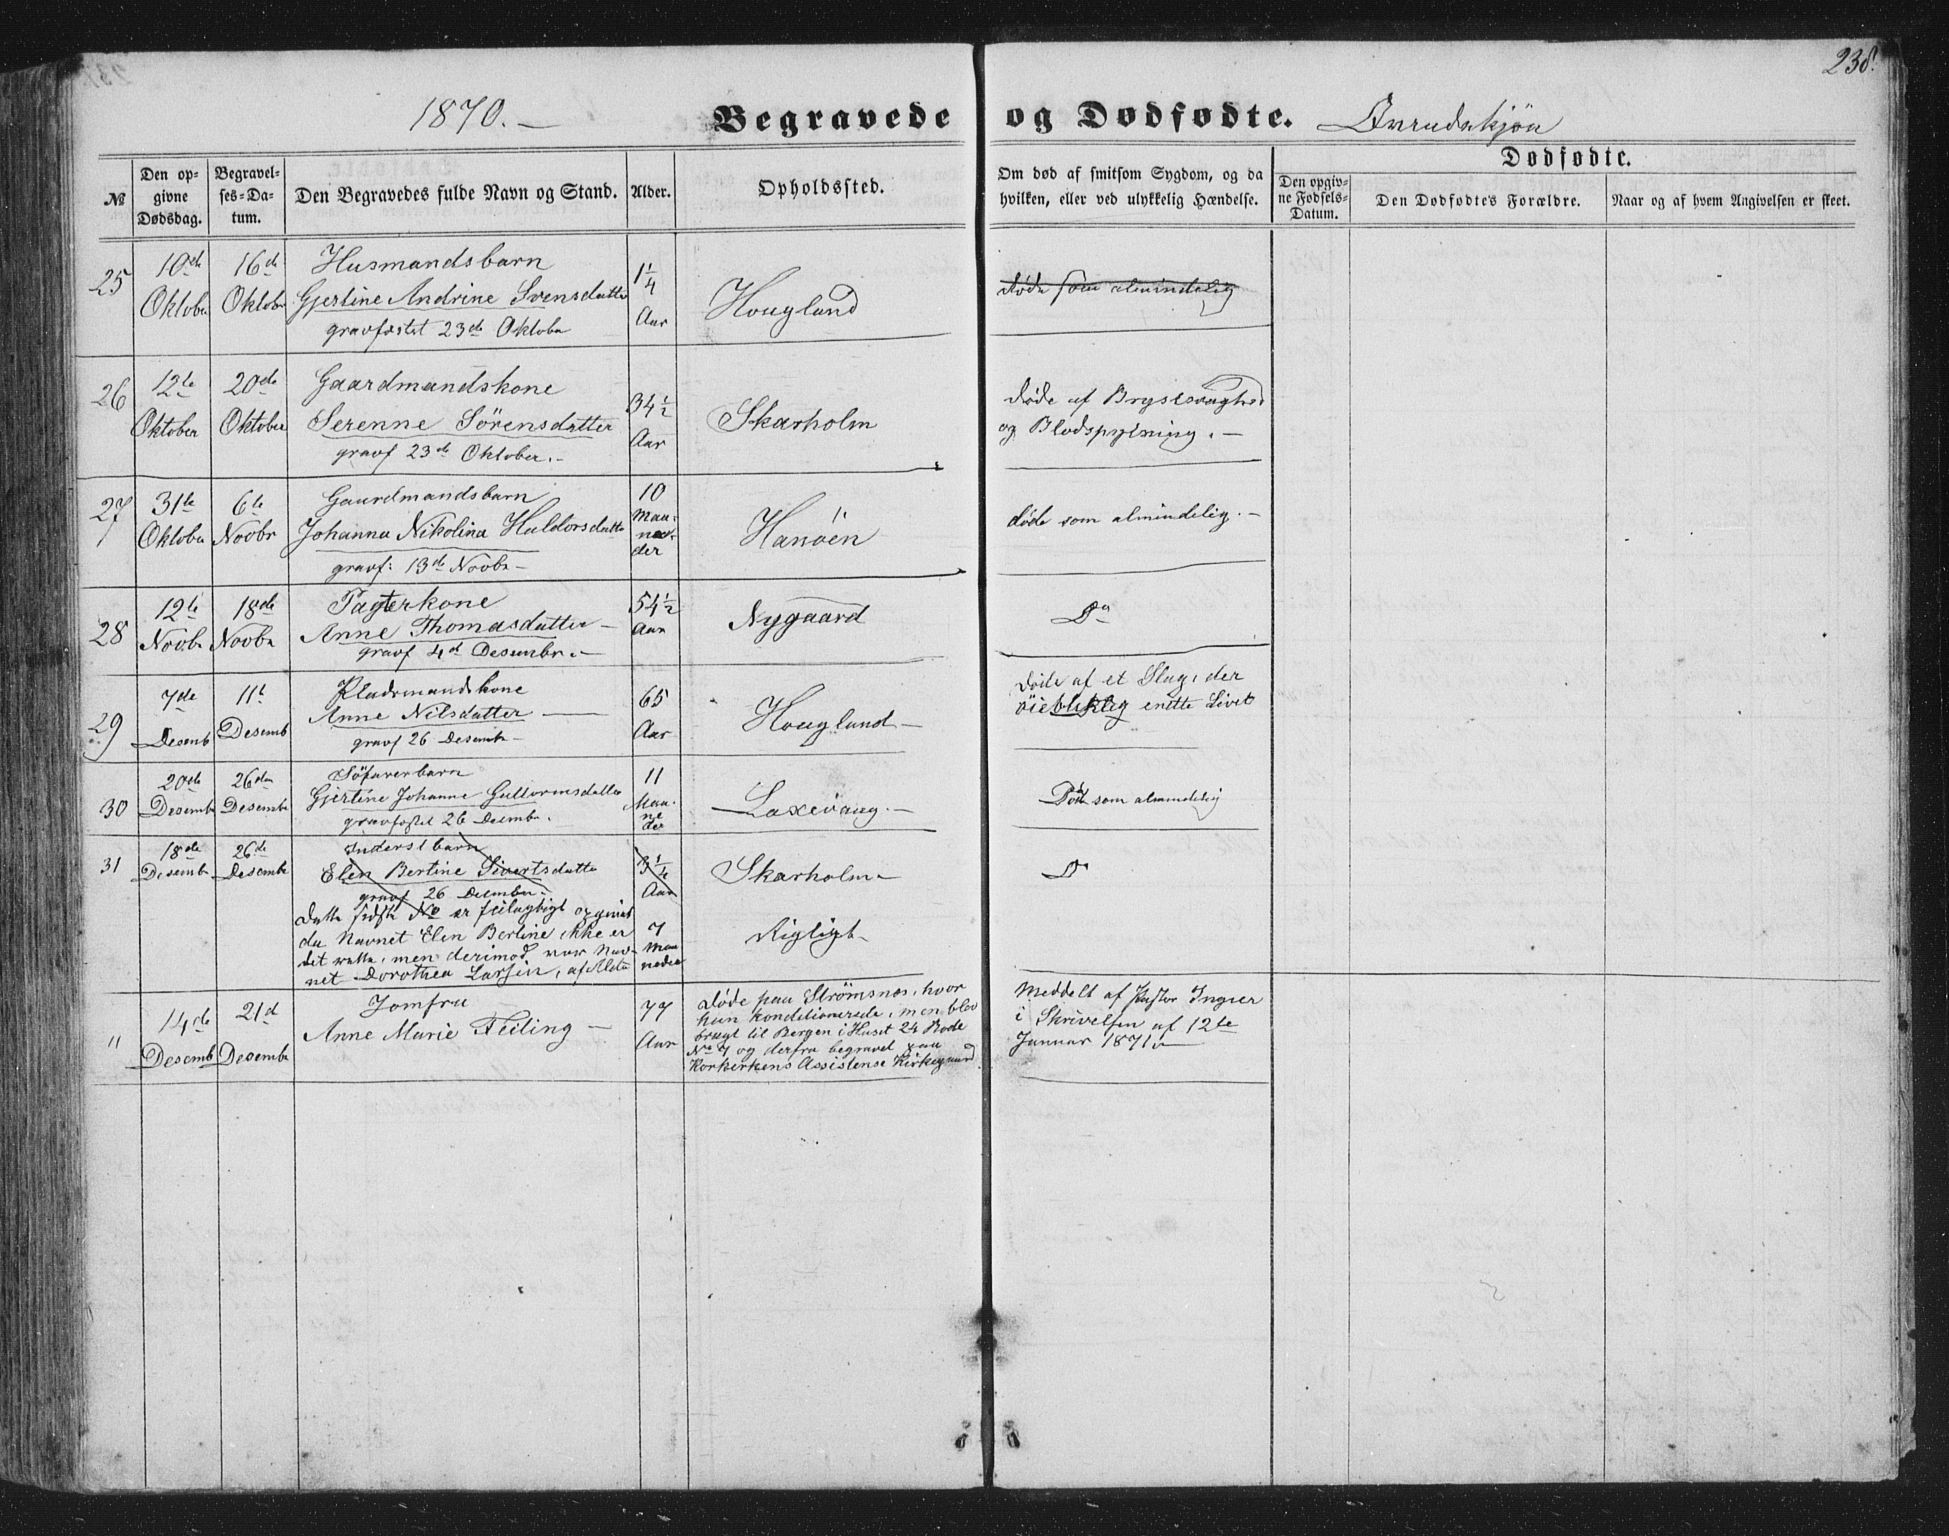 238.
1870. — Begravede og Dødfødte. Qvindekjön
№
Den opgivne Dødsdag.
Begravelses-Datum.
Den Begravedes fulde Navn og Stand.
Alder.
Opholdssted.
Om død af smitsom Sygdom, og da hvilken, eller ved ulykkelig Hændelse.
Dødfødte.
Den opgivne Fødsels-Datum.
Den Dødfødte's Forældre.
Naar og af hvem Angivelsen er skeet.
25
10de Oktober
16de Oktober
Husmandsbarn
Gjertine Andrine Svensdatter
gravfæstet 23de Oktober
1¼ Aar
Hougland
døde som almindelig
26
12te Oktober
20de Oktober
Gaardmandskone
Serenne Sörensdatter
gravf 23de Oktober. —
34½ Aar
Skarholm
døde af Brystsvaghed
og Blodspytning. —
27
31te Oktober
6te Novbr
Gaardmandsbarn
Johanna Nikolina Haldorsdatter
gravf: 13de Novbr —
10 Maaneder
Hanöen
døde som almindelig. —
28
12te Novbr
18de Novbr
Pagterkone
Anne Thomasdatter —
gravf 4de Desembr. —
54½ Aar
Nygaard
Do
29
7de Desemb
11te Desemb
Kaarmandskone
Anne Nilsdatter —
gravf 26 Desembr —
65 Aar
Hougland —
døde af et Slag, der
öieblikelig endte Livet
30
20de Desembr
26de Desembr
Söfarerbarn
Gjertine Johanne Guttormsdatter
gravfæstet 26 Desembr.
11 Maaneder
Laxevaag. —
Död som almindelig
31
18de Desembr
26de Desembr
Inderstbarn
Elen Bertine Sivertsdatter
gravf 26 Desember.
3¼ Aar
Skarholm —
Do
Dette sidste No er feilagtigt opgivet
da Navnet Elen Bertine ikke er
det rette, men derimod var Nav-
net Dorothea Larsen, af Alder
7 Maaneder
Rigtigt —
"
14de Desemb
21de Desembr
Jomfru
Anne Marie Feiling —
77 Aar
döde paa Strömsnes, hvor
hun konditionerede, men blev
bragt til Bergen i Huset 24 Rode
No 7 og derfra begravet paa
Korskirkens Assistense Kirkegaard.
Meddelt af Pastor Ingier
i Skrivelsen af 12te
Januar 1871. —